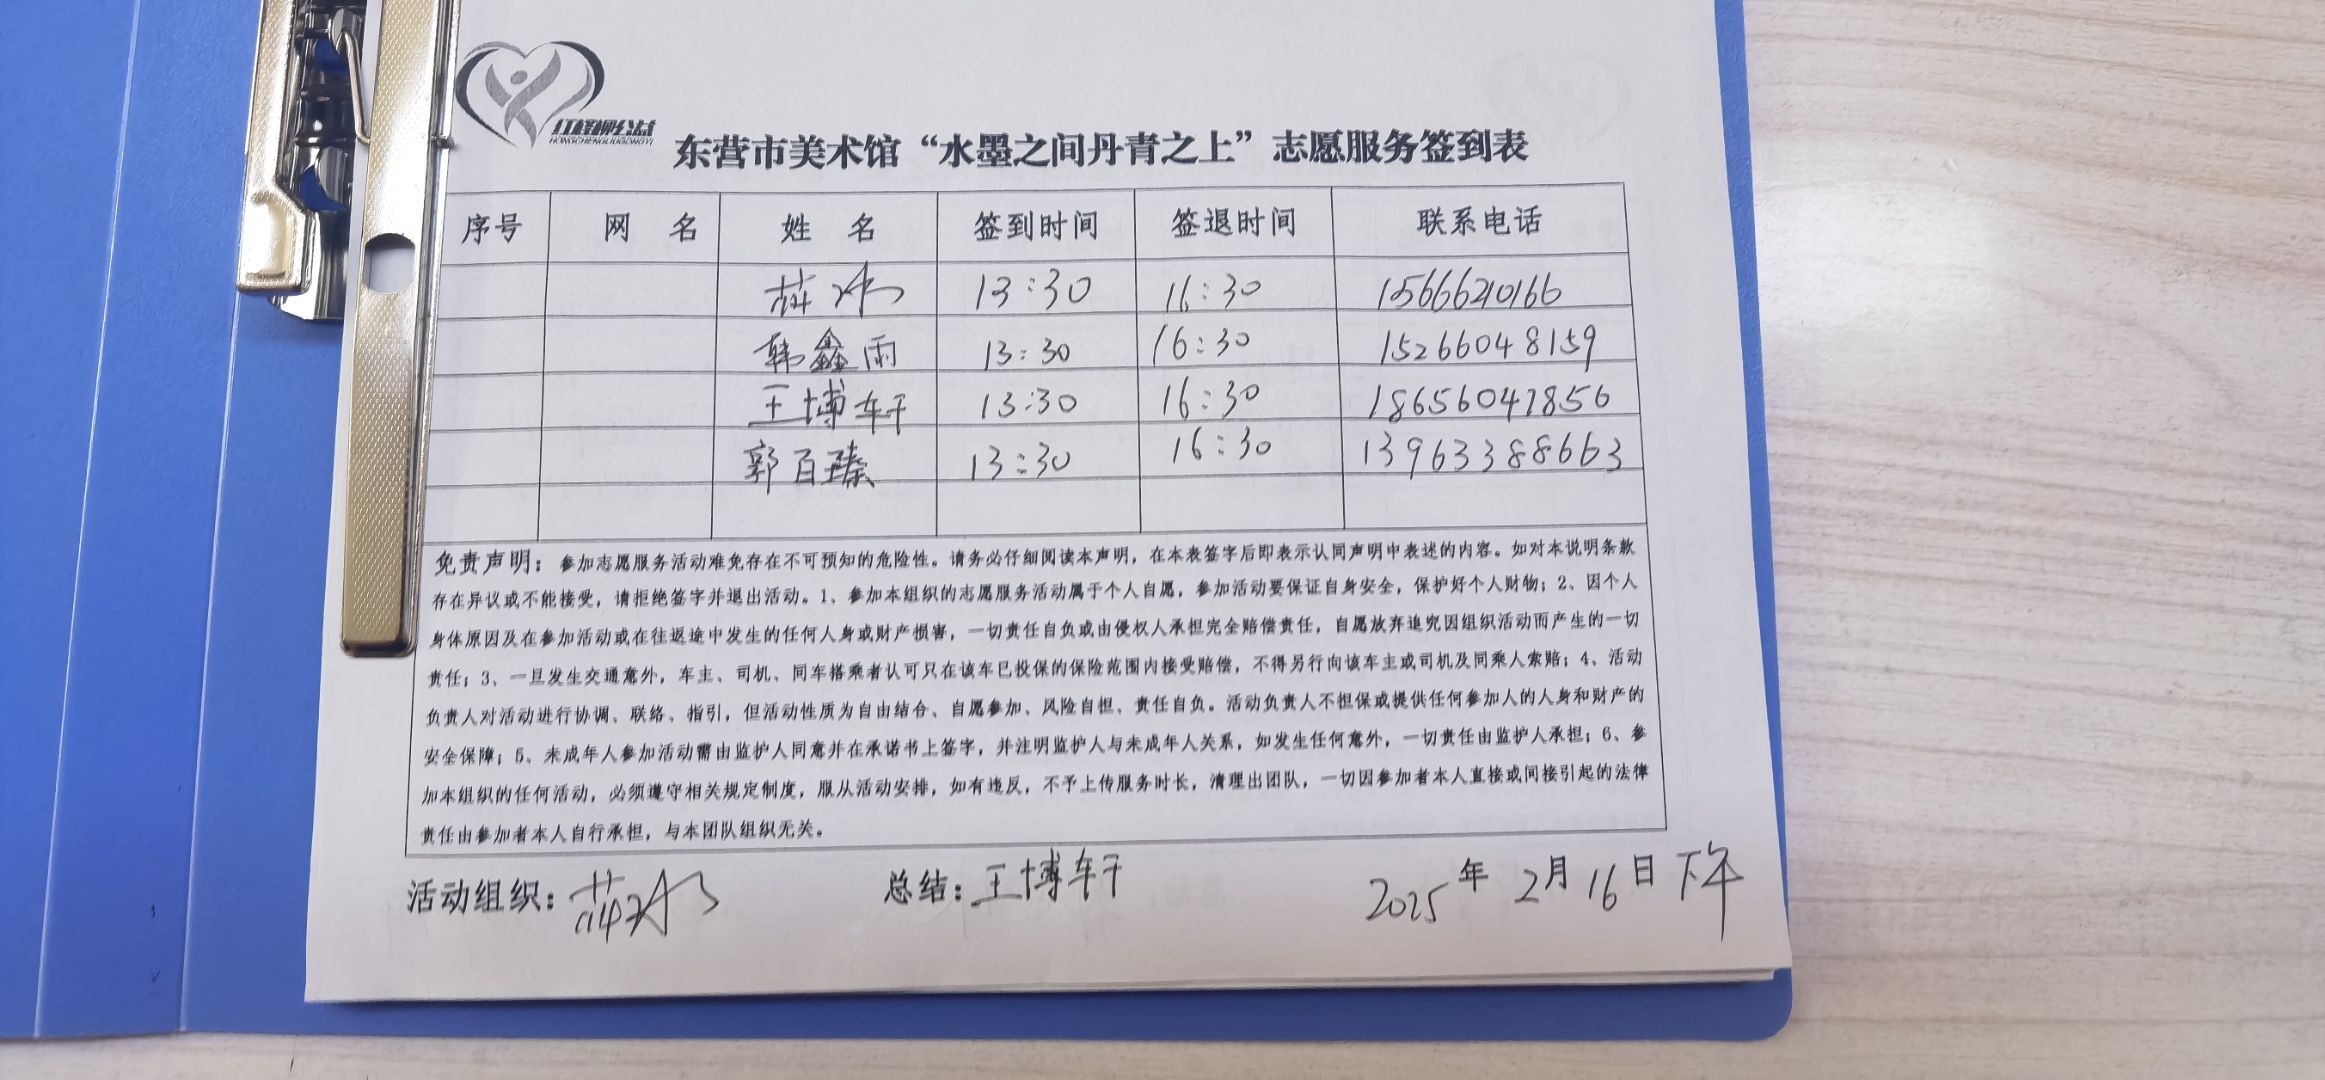 红柽柳公益
HONGCHENGLIUGONGYI
东营市美术馆“水墨之间丹青之上”志愿服务签到表
序号 网 名 姓 名 签到时间 签退时间 联系电话
13:30 16:30 15666210166
韩鑫雨 13:30 16:30 15266048159
王博轩 13:30 16:30 18656047856
郭百臻 13:30 16:30 13963388663
免责声明：参加志愿服务活动难免存在不可预知的危险性。请务必仔细阅读本声明，在本表签字后即表示认同声明中表述的内容。如对本说明条款
存在异议或不能接受，请拒绝签字并退出活动。1、参加本组织的志愿服务活动属于个人自愿，参加活动要保证自身安全，保护好个人财物；2、因个人
身体原因及在参加活动或在往返途中发生的任何人身或财产损害，一切责任自负或由侵权人承担完全赔偿责任，自愿放弃追究因组织活动而产生的一切
责任；3、一旦发生交通意外，车主、司机、同车搭乘者认可只在该车已投保的保险范围内接受赔偿，不得另行向该车主或司机及同乘人索赔；4、活动
负责人对活动进行协调、联络、指引，但活动性质为自由结合、自愿参加、风险自担、责任自负。活动负责人不担保或提供任何参加人的人身和财产的
安全保障；5、未成年人参加活动需由监护人同意并在承诺书上签字，并注明监护人与未成年人关系，如发生任何意外，一切责任由监护人承担；6、参
加本组织的任何活动，必须遵守相关规定制度，服从活动安排，如有违反，不予上传服务时长，清理出团队，一切因参加者本人直接或间接引起的法律
责任由参加者本人自行承担，与本团队组织无关。
活动组织： 总结：王博轩 2025年2月16日下午